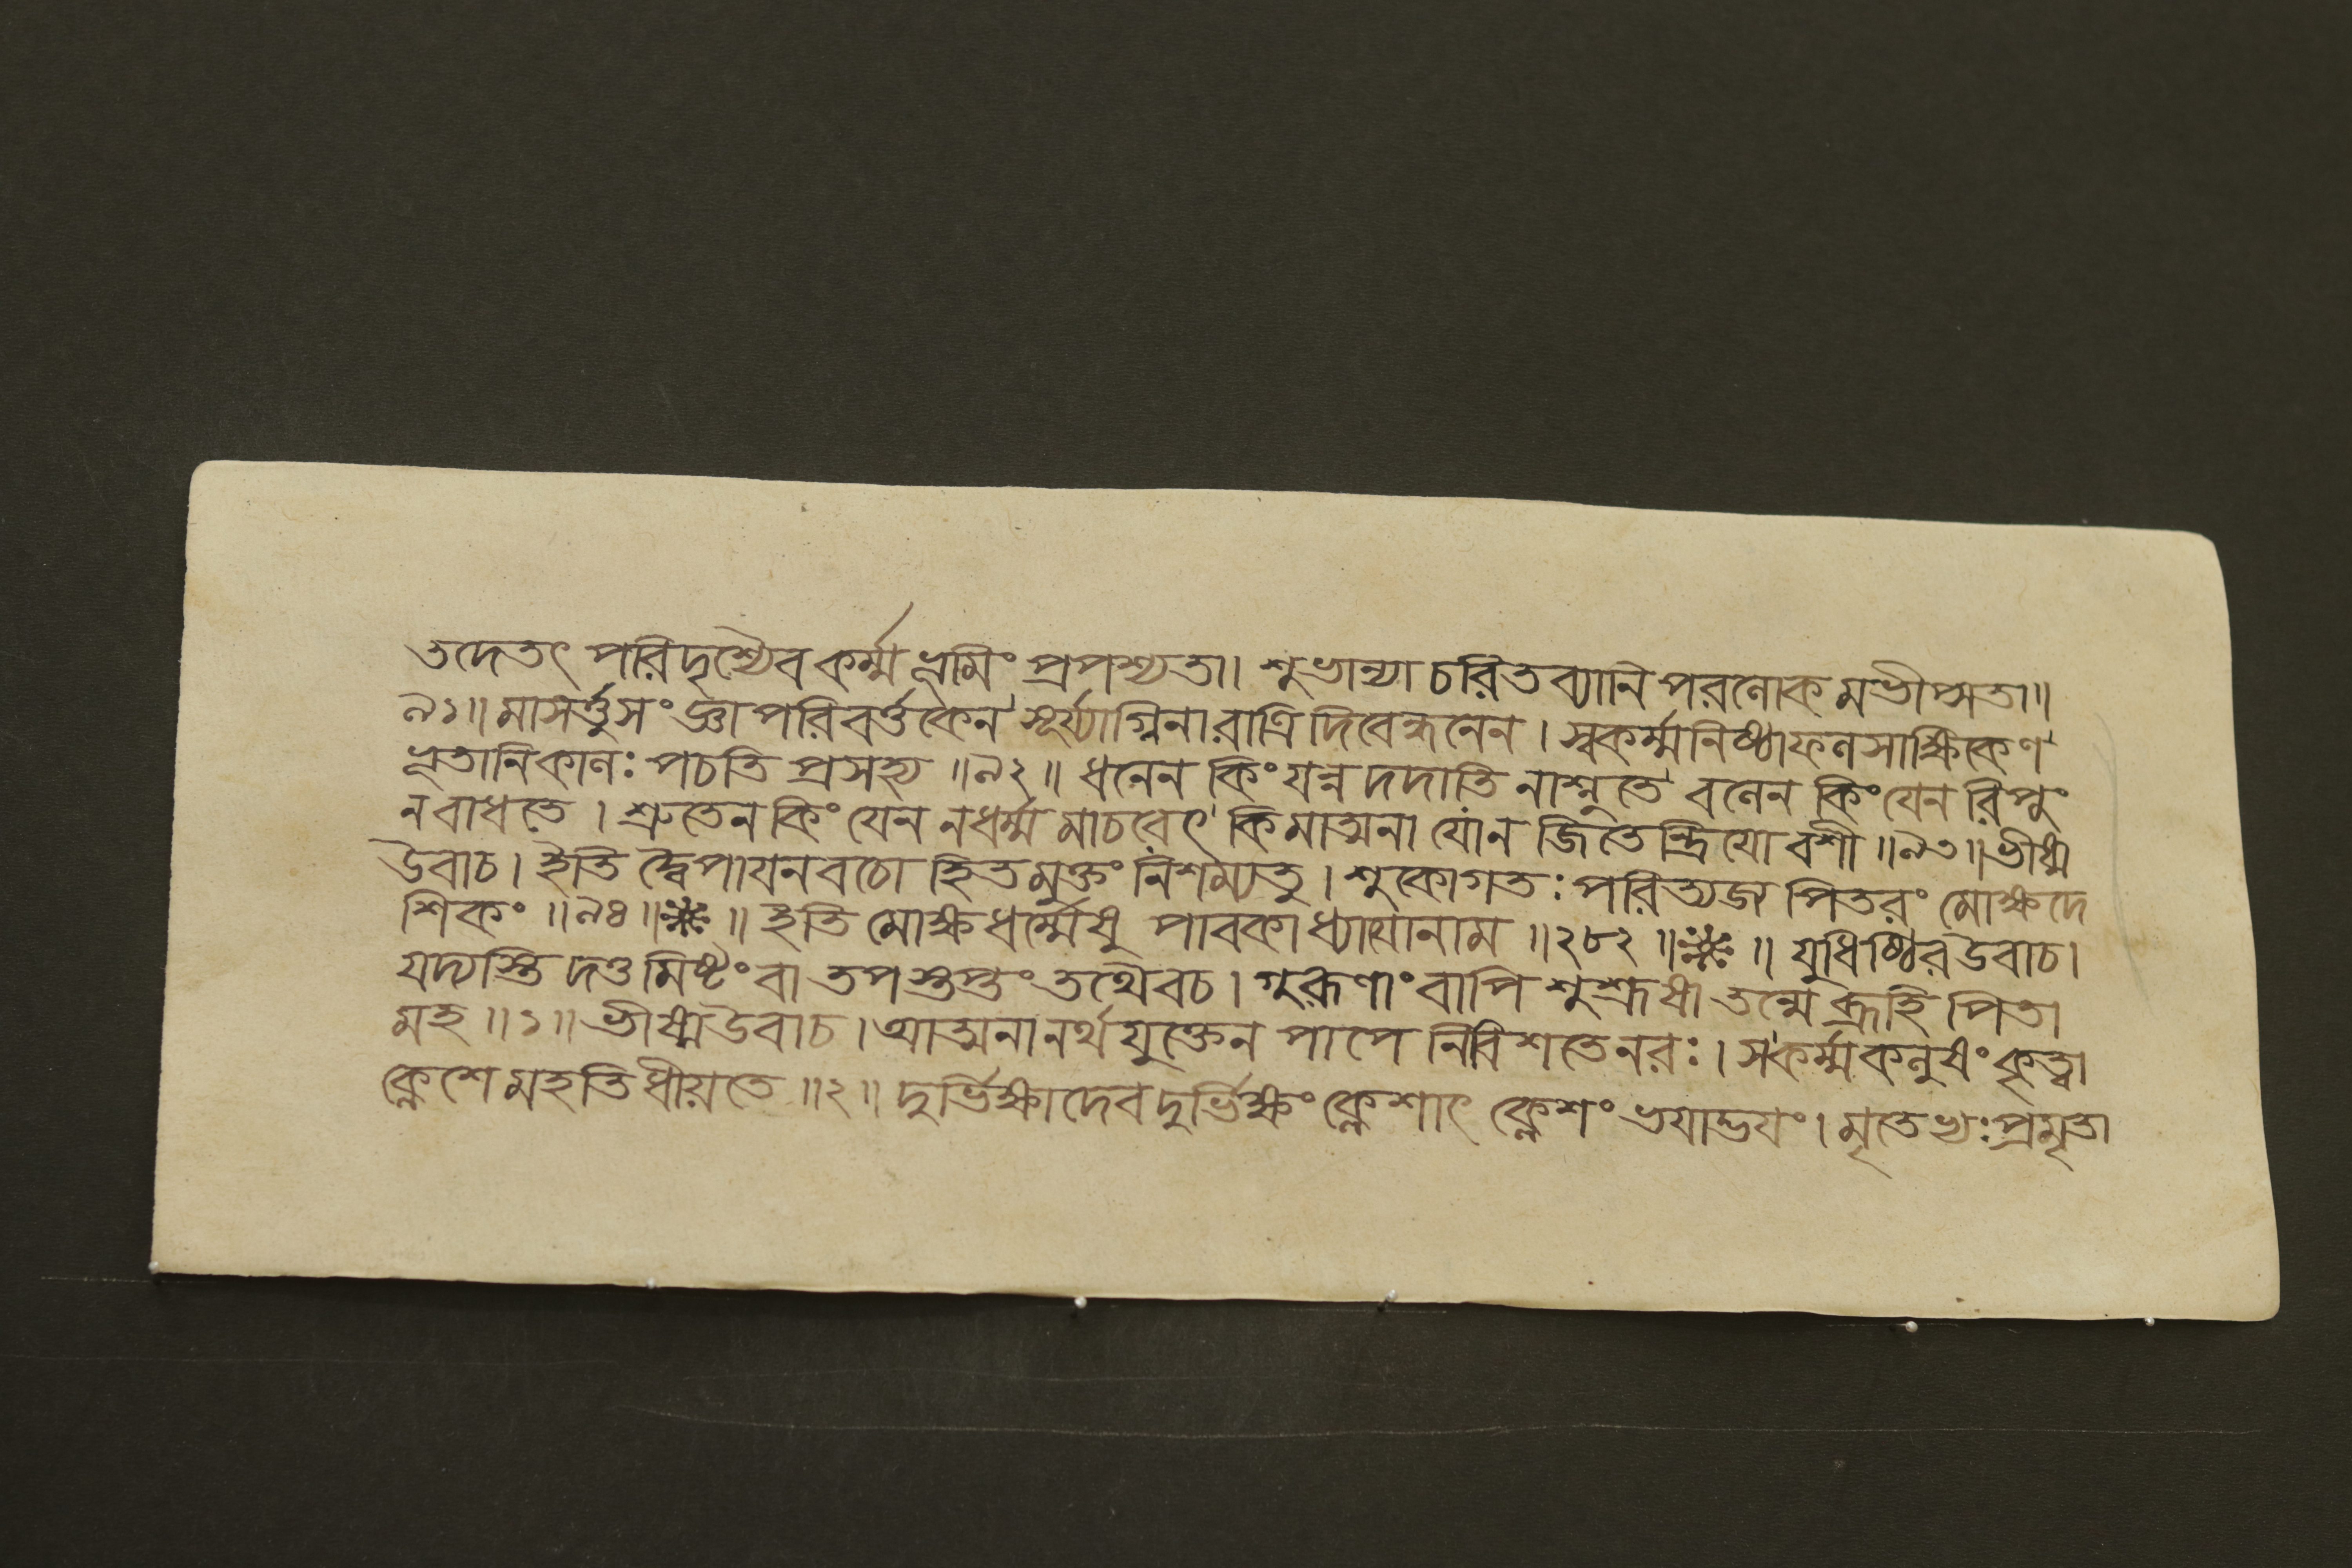 তদেতৎ পরিদৃশ্যৈব কর্ম্মভূমিং প্রপশ্যতা। শুভান্যাচরিতব্যানি পরলোকমভীপ্সতা॥
৯১॥ মাসর্ত্তুসংজ্ঞাপরিবর্ত্তকেন সূর্য্যাগ্নিনা রাত্রিদিবেন্ধনেন। স্বকর্ম্মনিষ্ঠাফলসাক্ষিকেণ
ভূতানি কালঃ পচতি প্রসহ্য ॥৯২॥ ধনেন কিং যন্ন দদাতি নাশ্নুতে বলেন কিং যেন রিপুং
ন বাধতে। শ্রুতেন কিং যেন ন ধর্ম্মমাচরেৎ কিমাত্মনা যো ন জিতেন্দ্রিয়ো বশী ॥৯৩॥ ভীষ্ম
উবাচ। ইতি দ্বৈপায়নবচো হিতমুক্তং নিশম্য তু। শুকো গতঃ পরিত্যজ্য পিতরং মোক্ষদে
শিকং ॥৯৪॥❋॥ ইতি মোক্ষধর্ম্মেষু পাবকাধ্যায়োনাম ॥২৮২॥❋॥ যুধিষ্ঠির উবাচ।
যদ্যস্তি দত্তমিষ্টং বা তপস্তপ্তং তথৈব চ। গুরূণাং বাপি শুশ্রূষা তন্মে ব্রূহি পিতা
মহ ॥১॥ ভীষ্ম উবাচ। আত্মনানর্থযুক্তেন পাপে নিবিশতে নরঃ। স কর্ম্ম কলুষং কৃত্বা
ক্লেশে মহতি ধীয়তে ॥২॥ দুর্ভিক্ষাদেব দুর্ভিক্ষং ক্লেশাৎ ক্লেশং ভয়াদ্ভয়ং। মৃতেভ্যঃ প্রমৃতা